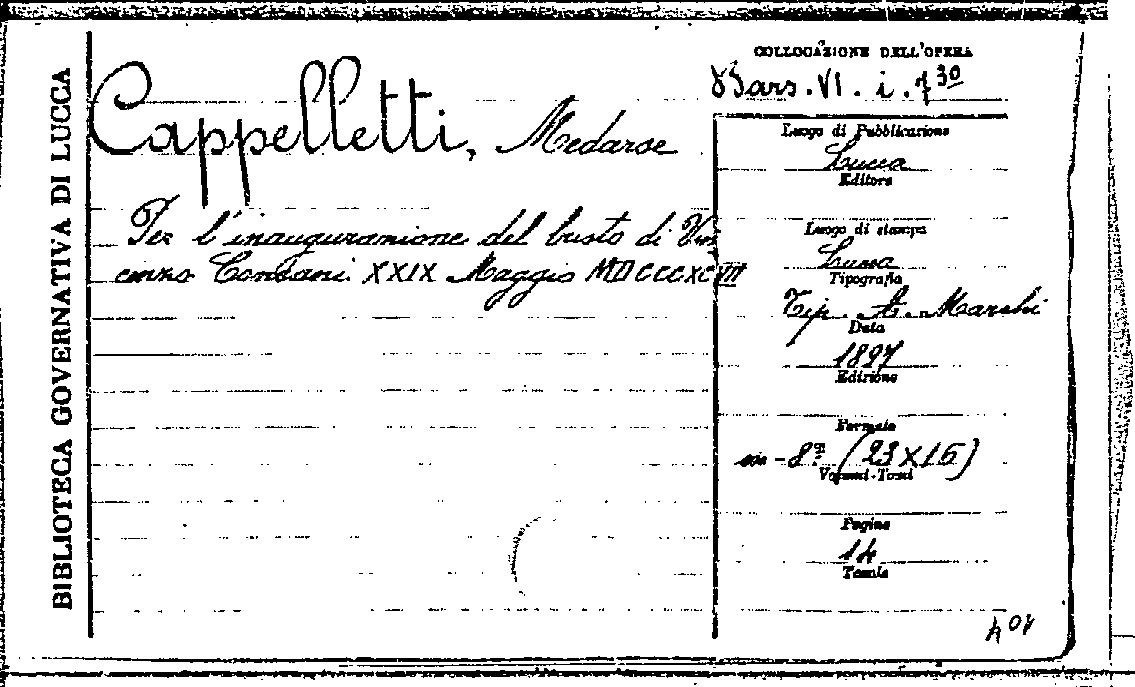 BIBLIOTECA GOVERNATIVA DI LUCCA
Cappelletti, Medarse
Per l'inaugurazione del busto di Vin
cenzo Consani XXIX Maggio MDCCCXCVII
COLLOCAZIONE DELL'OPERA
Bars. VI. i. 7 30
Luogo di Pubblicazione
Lucca
Editore
Luogo di stampa
Lucca
Tipografia
Tip. A. Marchi
Data
1897
Edizione
Formato
in-8º (23X16)
Volumi-Tomi
Pagine
14
Tavole